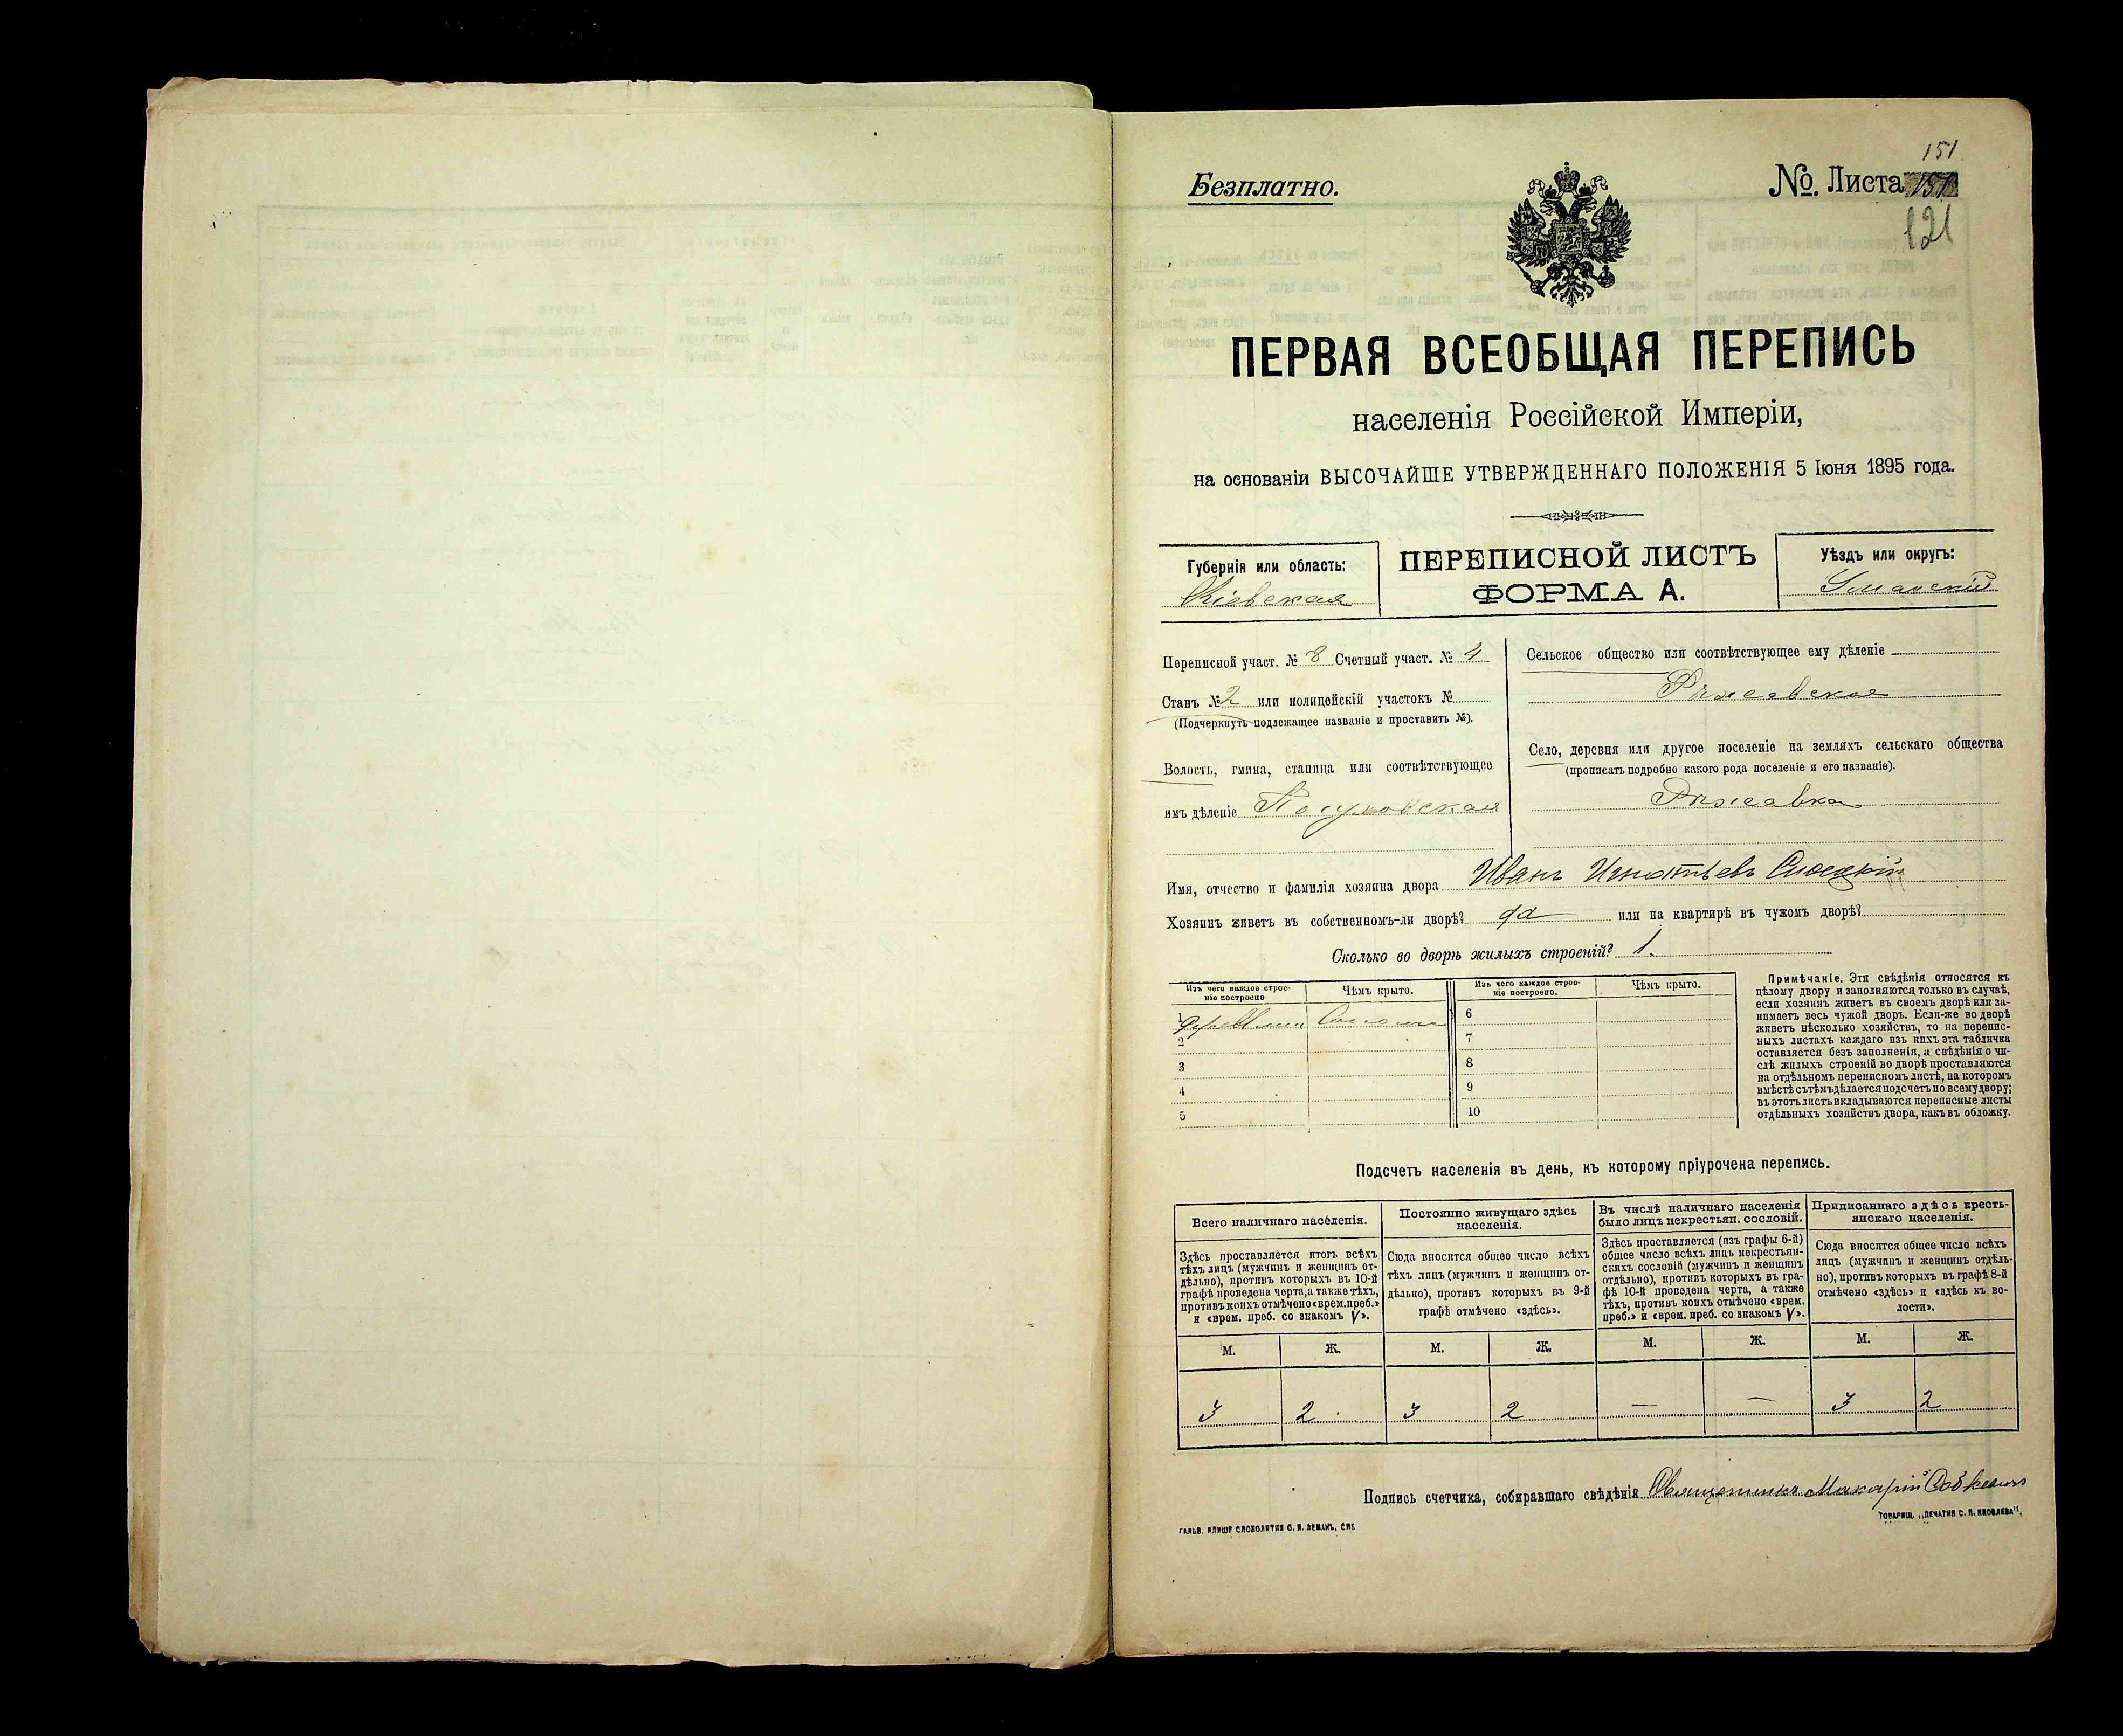 151
Безплатно.
№. Листа 151
121
ПЕРВАЯ ВСЕОБЩАЯ ПЕРЕПИСЬ
населенія Россійской Имперіи,
на основаніи ВЫСОЧАЙШЕ УТВЕРЖДЕННАГО ПОЛОЖЕНІЯ 5 Іюня 1895 года.
Губернія или область:
Кіевская
ПЕРЕПИСНОЙ ЛИСТЪ
ФОРМА А.
Уѣздъ или округъ:
Уманскій
Переписной участ. № 8 Счетный участ. № 4
Станъ № 2 или полицейскій участокъ №
(Подчеркнуть подлежащее названіе и проставить №).
Волость, гмина, станица или соотвѣтствующее
имъ дѣленіе
Сельское общество или соотвѣтствующее ему дѣленіе
Рыжавское
Село, деревня или другое поселеніе на земляхъ сельскаго общества
(прописать подробно какого рода поселеніе и его названіе).
Рыжавка
Имя, отчество и фамилія хозяина двора Иванъ Игнатьевъ
Хозяинъ живетъ въ собственномъ-ли дворѣ? да или на квартирѣ въ чужомъ дворѣ?
Сколько во дворѣ жилыхъ строеній? 1.
Изъ чего каждое строе-
ніе построено
Чѣмъ крыто.
Изъ чего каждое строе-
ніе построено.
Чѣмъ крыто.
1
2
3
4
5
6
7
8
9
10
Примѣчаніе. Эти свѣдѣнія относятся къ
цѣлому двору и заполняются только въ случаѣ,
если хозяинъ живетъ въ своемъ дворѣ или за-
нимаетъ весь чужой дворъ. Если-же во дворѣ
живетъ нѣсколько хозяйствъ, то на перепис-
ныхъ листахъ каждаго изъ нихъ эта табличка
оставляется безъ заполненія, а свѣдѣнія о чи-
слѣ жилыхъ строеній во дворѣ проставляются
на отдѣльномъ переписномъ листѣ, на которомъ
вмѣстѣ съ тѣмъ дѣлается подсчетъ по всему двору;
въ этотъ листъ вкладываются переписные листы
отдѣльныхъ хозяйствъ двора, какъ въ обложку.
Подсчетъ населенія въ день, къ которому пріурочена перепись.
Всего наличнаго населенія.
Здѣсь проставляется итогъ всѣхъ
тѣхъ лицъ (мужчинъ и женщинъ от-
дѣльно), противъ которыхъ въ 10-й
графѣ проведена черта, а также тѣхъ,
противъ коихъ отмѣчено «врем. преб.»
и «врем. преб. со знакомъ V».
Постоянно живущаго здѣсь
населенія.
Сюда вносится общее число всѣхъ
тѣхъ лицъ (мужчинъ и женщинъ от-
дѣльно), противъ которыхъ въ 9-й
графѣ отмѣчено «здѣсь».
Въ числѣ наличнаго населенія
было лицъ некрестьян. сословій.
Здѣсь проставляется (изъ графы 6-й)
общее число всѣхъ лицъ некрестьян-
скихъ сословій (мужчинъ и женщинъ
отдѣльно), противъ которыхъ въ гра-
фѣ 10-й проведена черта, а также
тѣхъ, противъ коихъ отмѣчено «врем.
преб.» и «врем. преб. со знакомъ V».
Приписаннаго здѣсь кресть-
янскаго населенія.
Сюда вносится общее число всѣхъ
лицъ (мужчинъ и женщинъ отдѣль-
но), противъ которыхъ въ графѣ 8-й
отмѣчено «здѣсь» и «здѣсь къ во-
лости».
М. Ж. М. Ж. М. Ж. М. Ж.
3 2 3 2 — — 3 2
Подпись счетчика, собиравшаго свѣдѣнія Священникъ Макарій
ТОВАРИЩ. „ПЕЧАТНЯ С. П. ЯКОВЛЕВА“.